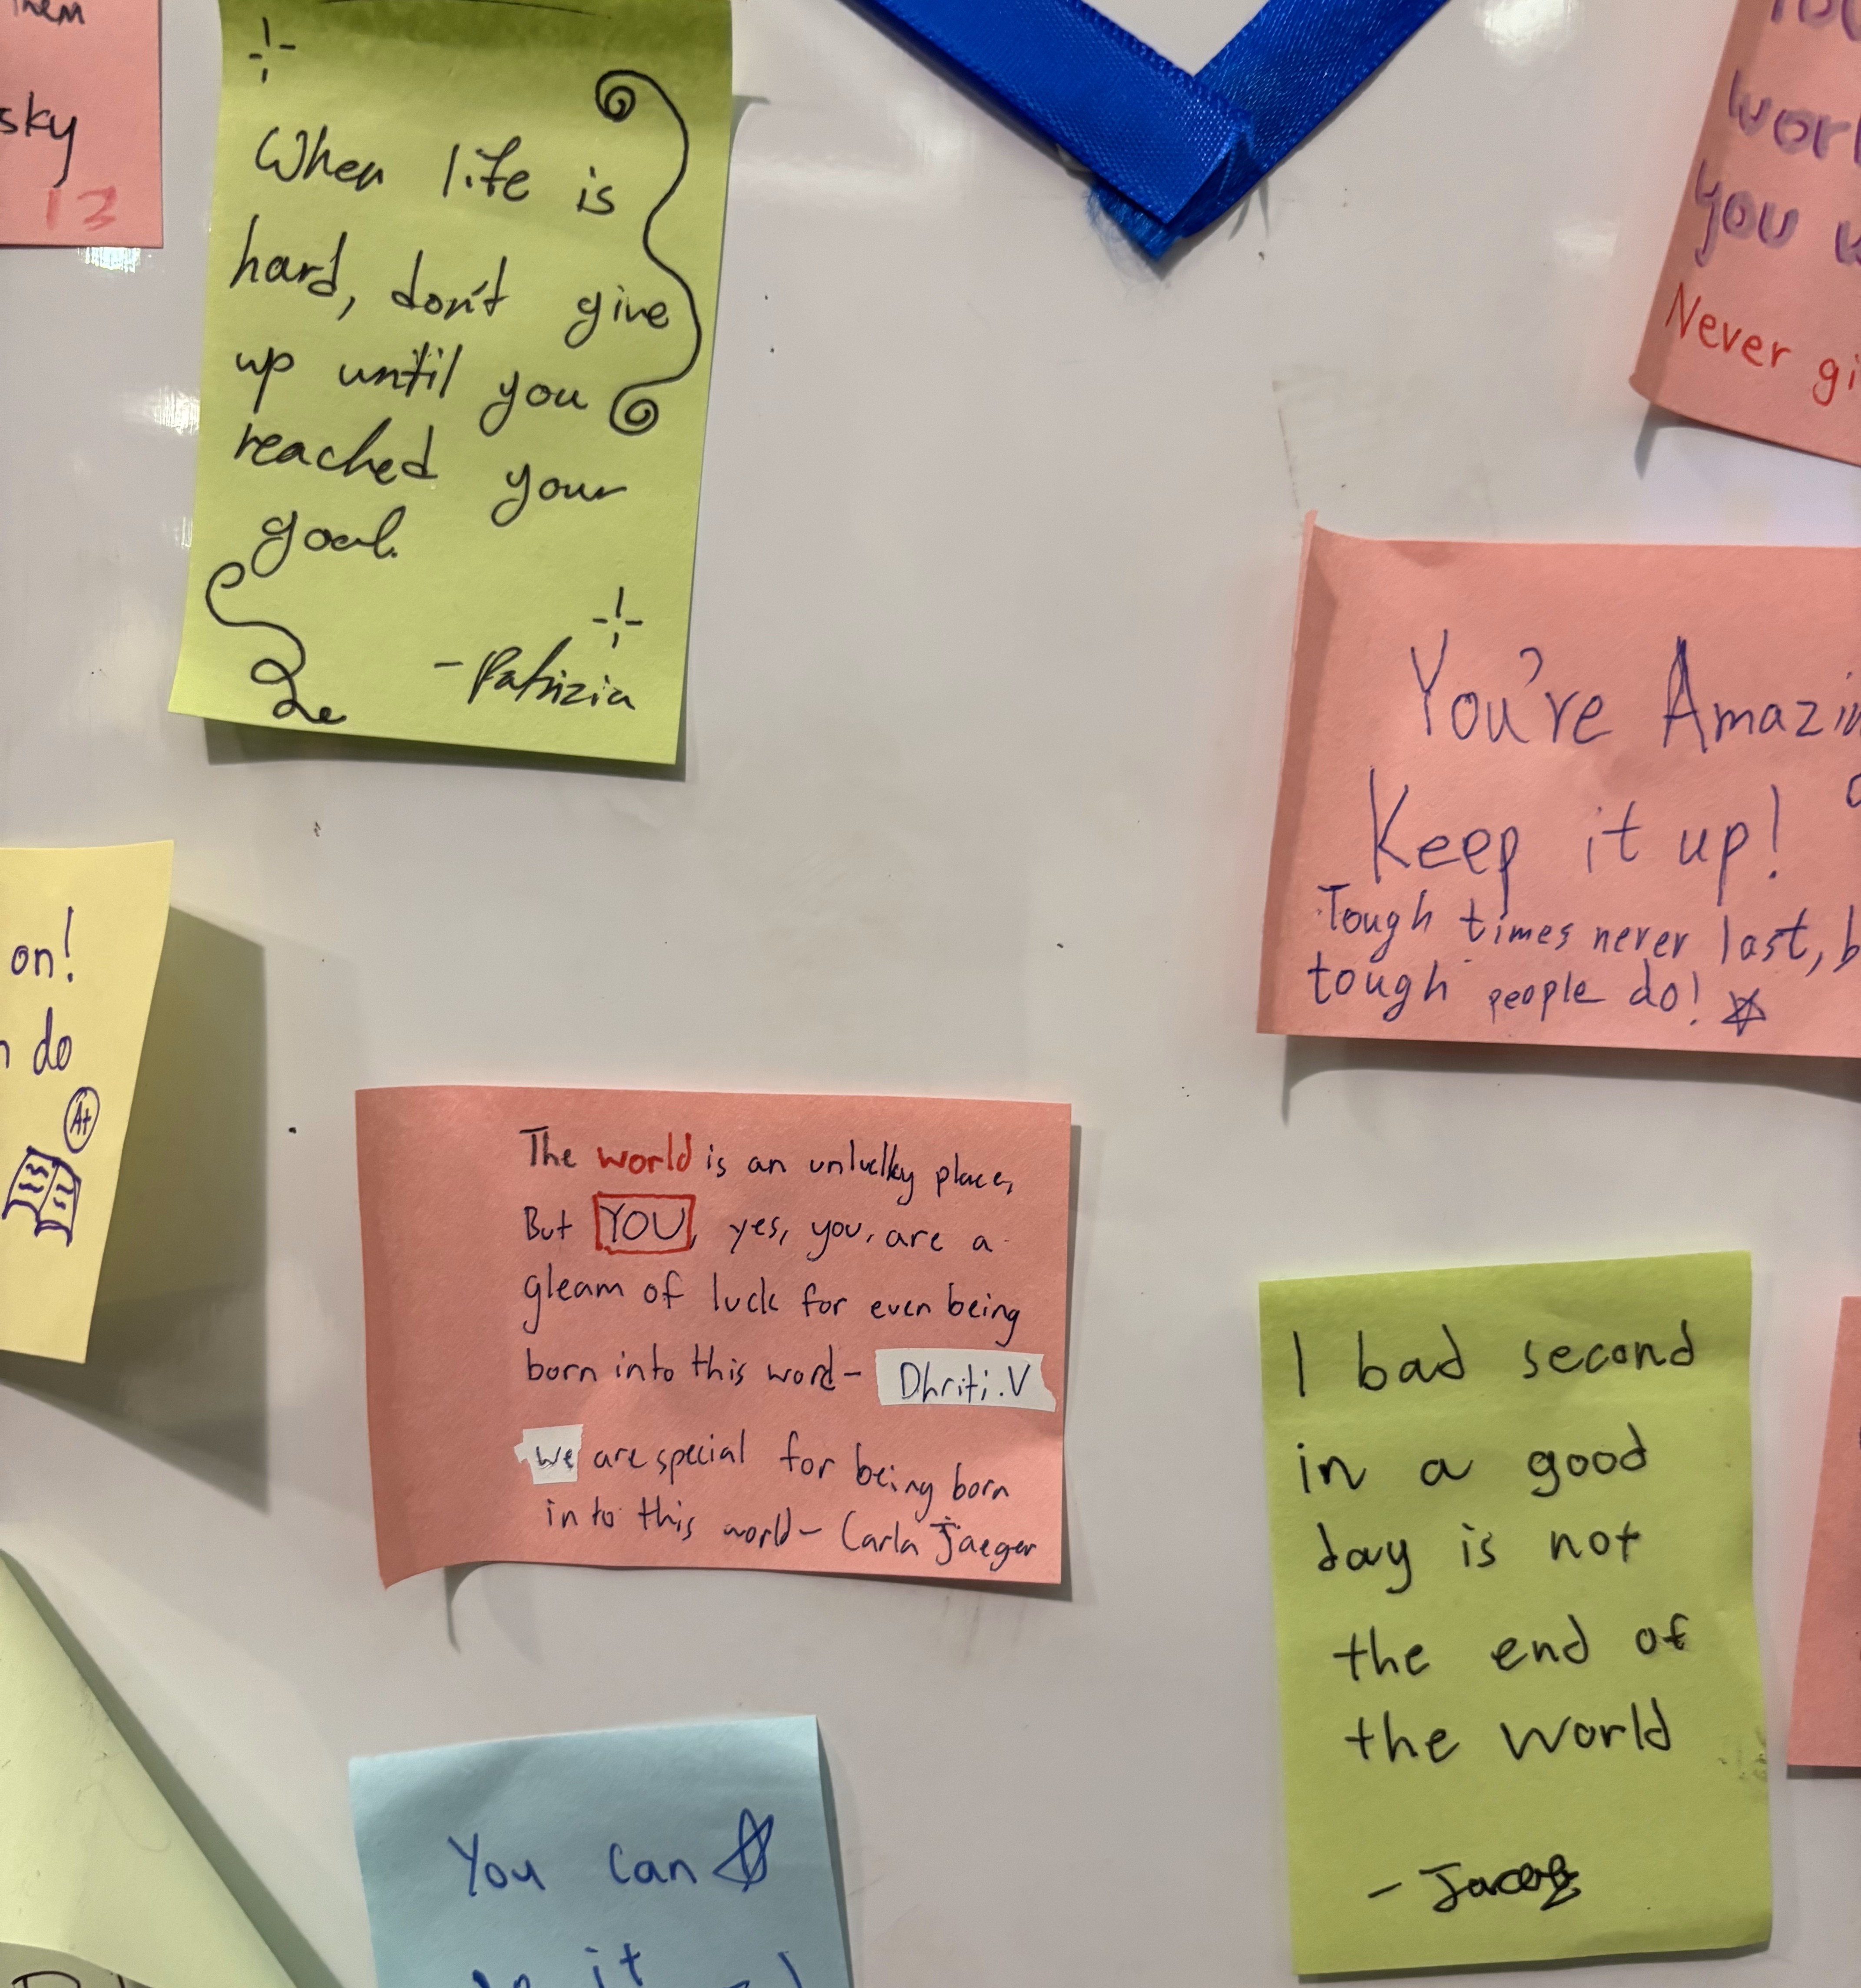 sky
13
When life is
hard, don't give
up until you
reached your
goal.
-Patrizia
wor
you
Never gi
You're Amazin
Keep it up!
Tough times never last, b
tough people do!
on!
do
A+
The world is an unlucky place,
But YOU, yes, you, are a
gleam of luck for even being
born into this word- Dhriti.V
We are special for being born
into this world- Carla Jaeger
1 bad second
in a good
day is not
the end of
the world
- Jacob
You can
it